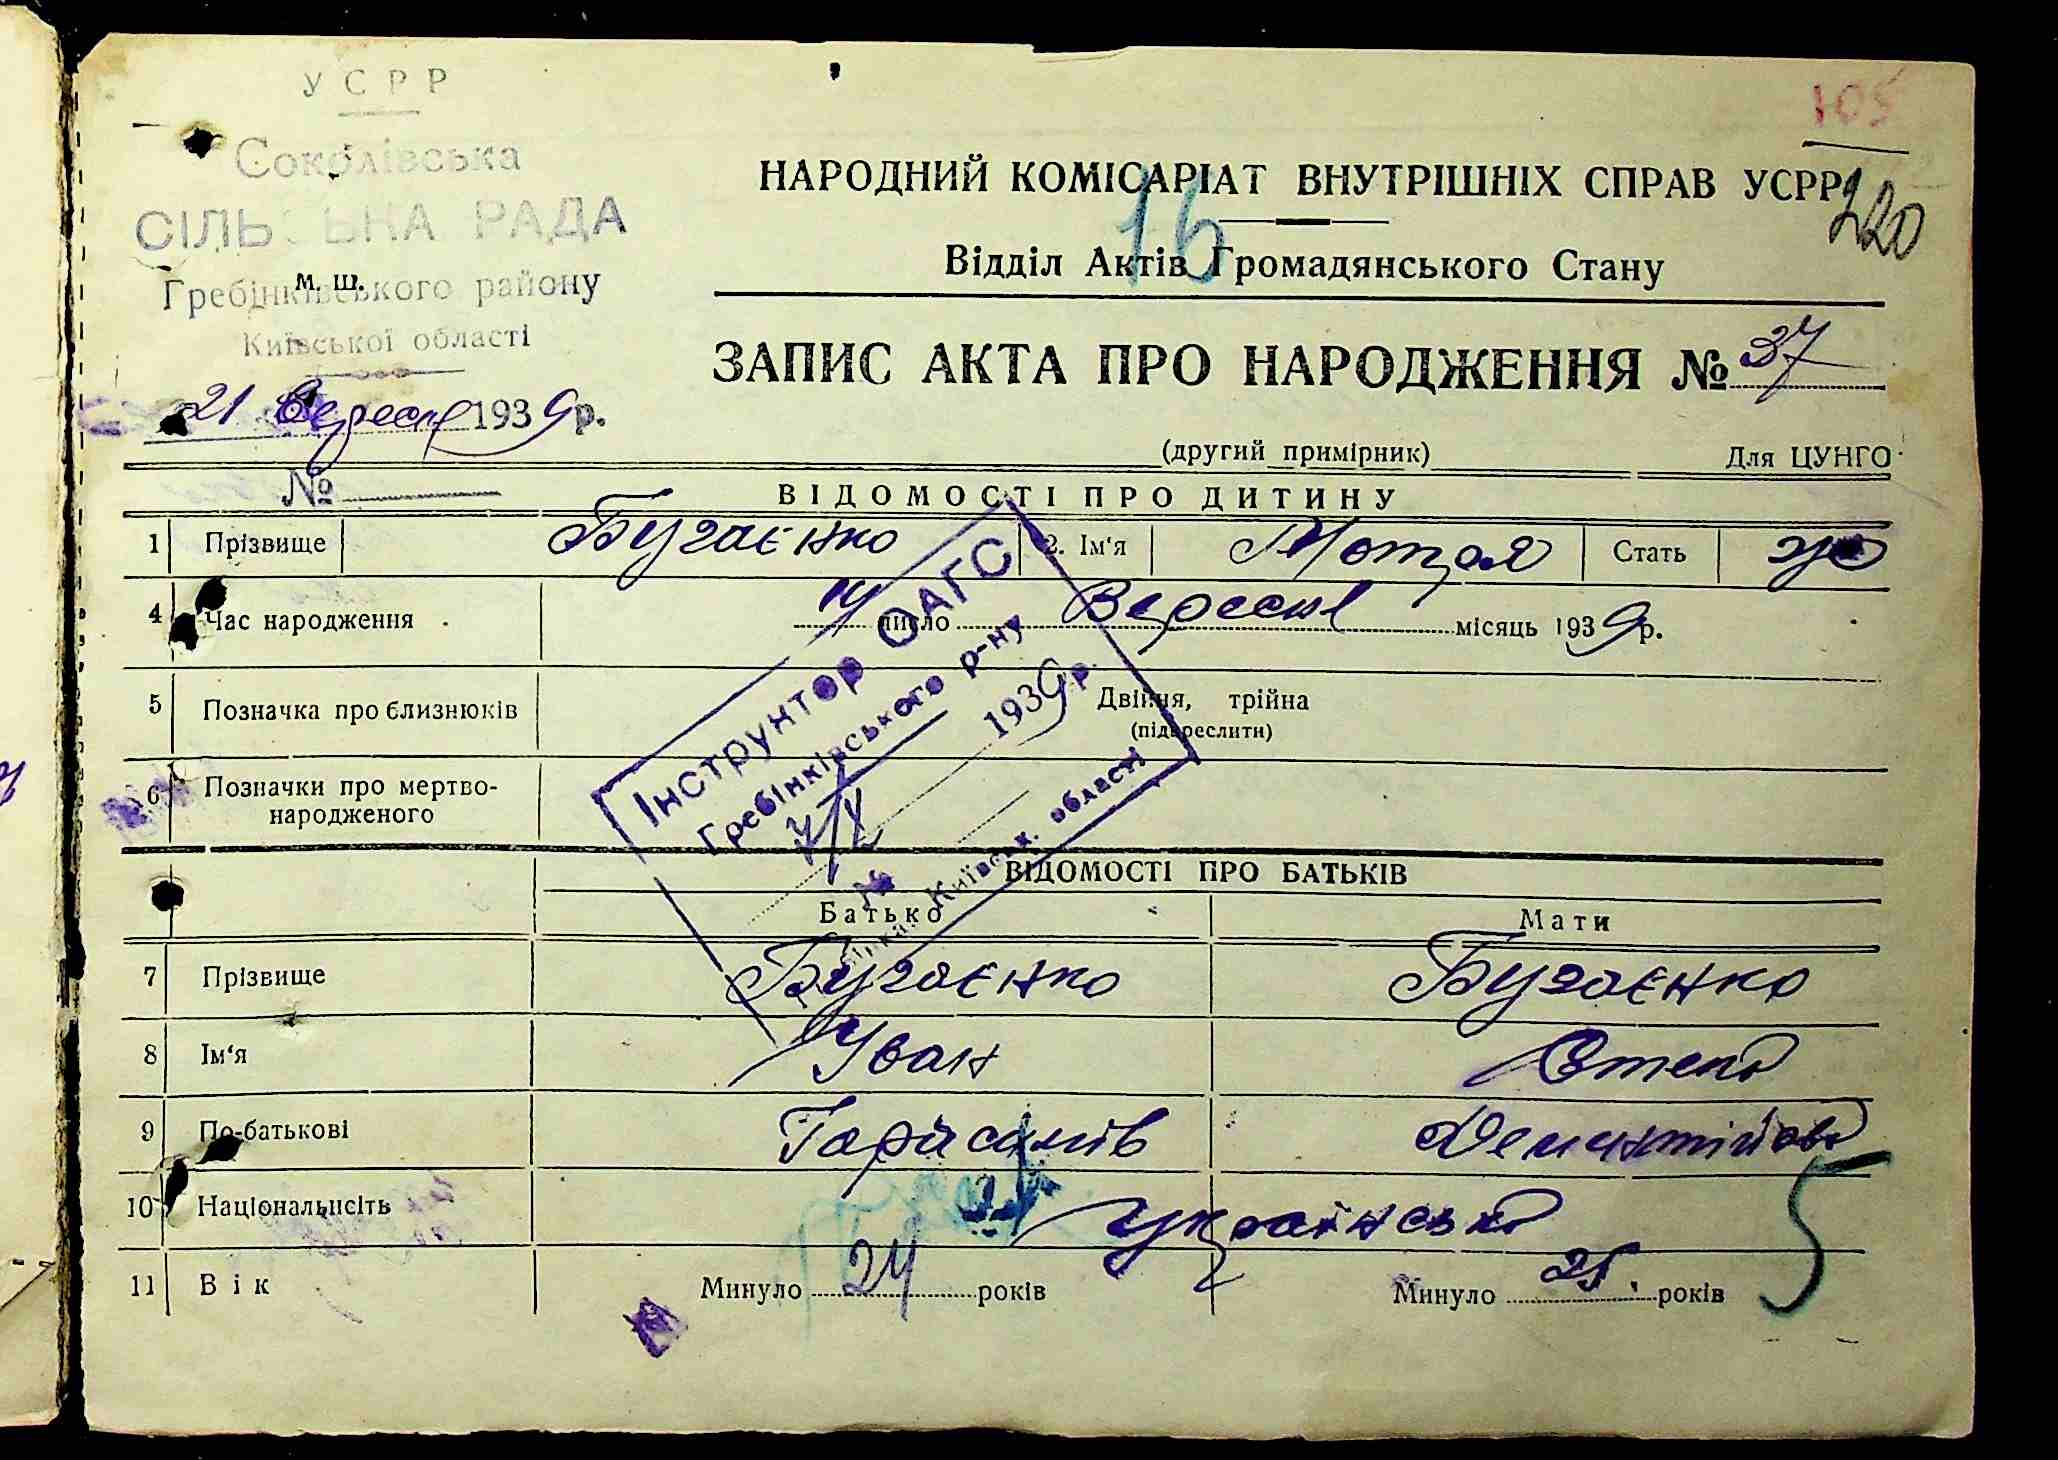 УСРР
Соколівська
СІЛЬСЬКА РАДА
м. ш.
Гребінківського району
Київської області
21 Вересня 1939 р.
№
105
220
16
НАРОДНИЙ КОМІСАРІАТ ВНУТРІШНІХ СПРАВ УСРР
Відділ Актів Громадянського Стану
ЗАПИС АКТА ПРО НАРОДЖЕННЯ № 37
(другий примірник) Для ЦУНГО
ВІДОМОСТІ ПРО ДИТИНУ
1 Прізвище Бугаєнко 2. Ім'я Мотря Стать
4 Час народження число Вересня місяць 1939 р.
5 Позначка про близнюків Двійня, трійна
(підкреслити)
6 Позначки про мертво-
народженого
Інструктор ОАГС
Гребінківського р-ну
1939 р.
№
Київськ. області
ВІДОМОСТІ ПРО БАТЬКІВ
Батько Мати
7 Прізвище Бугаєнко Бугаєнко
8 Ім'я Іван
9 По-батькові
10 Національність українська
11 Вік Минуло 24 років Минуло 25 років
5